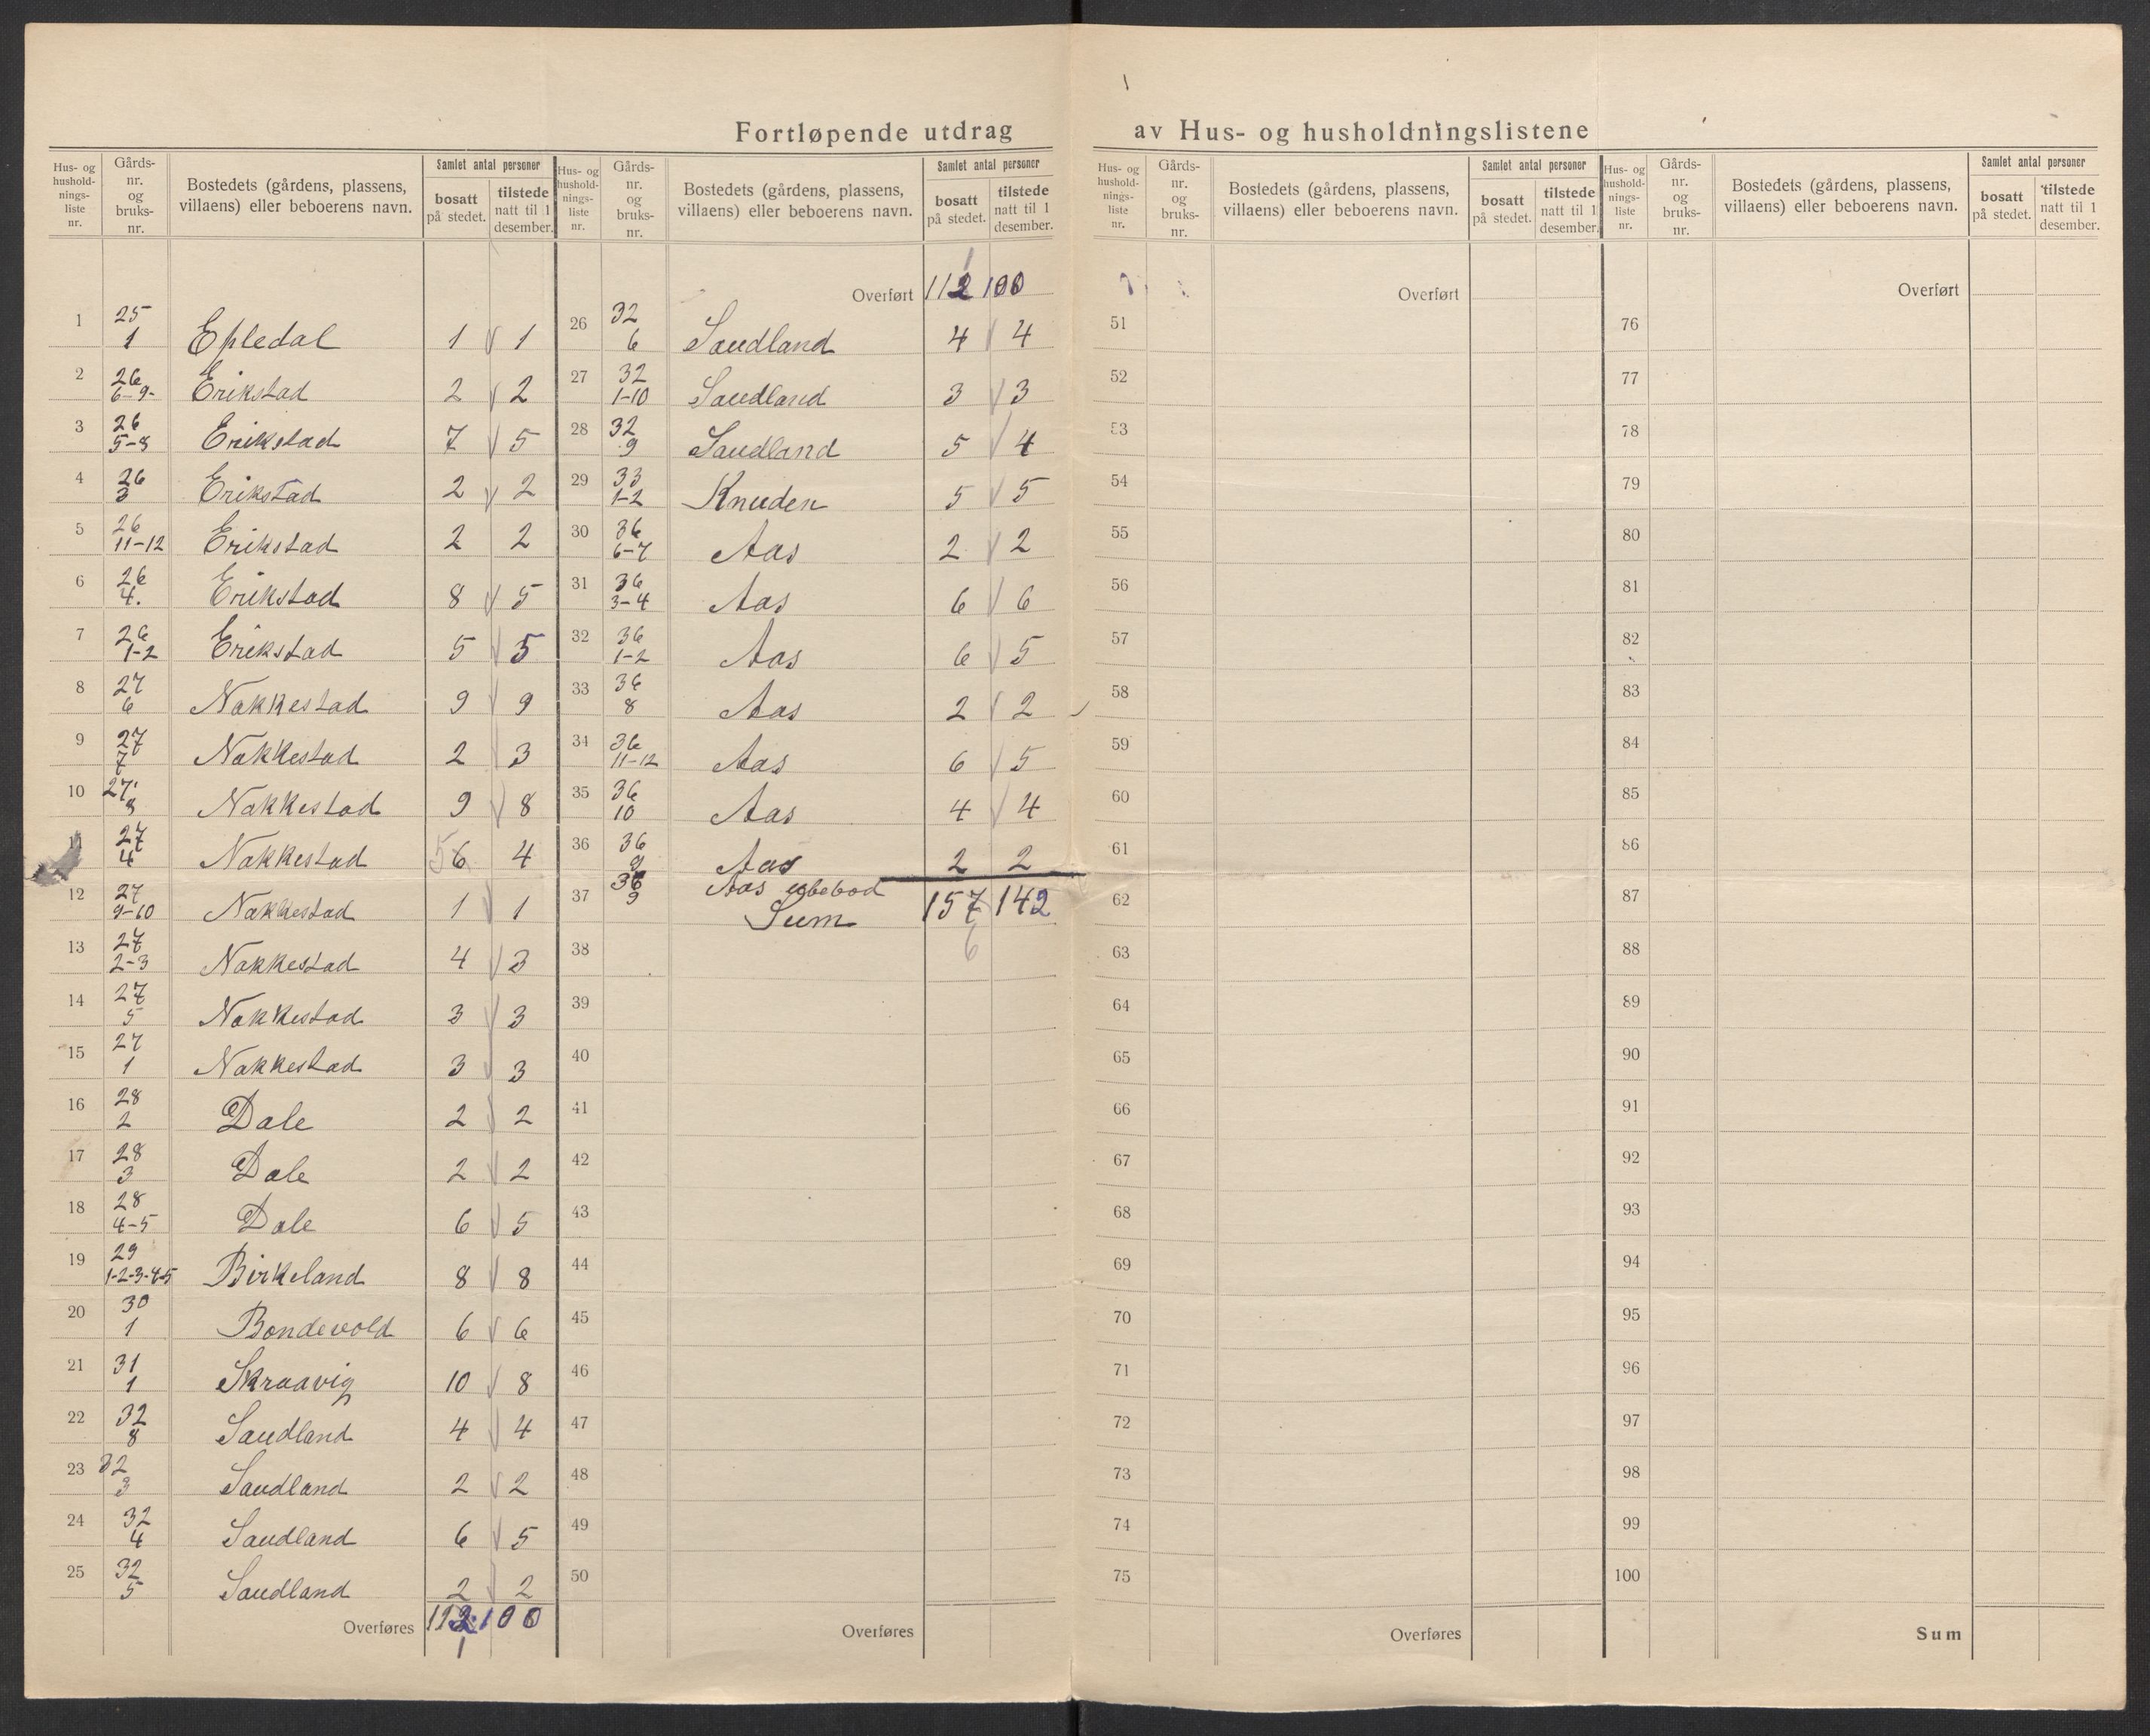 Fortløpende utdrag av Hus- og husholdningslistene
Hus- og hushold-nings-liste nr. | Gårds-nr. og bruks-nr. | Bostedets (gårdens, plassens, villaens) eller beboerens navn. | Samlet antal personer: bosatt på stedet. | tilstede natt til 1 desember.
1 25/1 Epledal 1 1
2 26/6-9- Erikstad 2 2
3 26/5-8 Erikstad 7 5
4 26/3 Erikstad 2 2
5 26/11-12 Erikstad 2 2
6 26/4. Erikstad 8 5
7 26/1-2 Erikstad 5 5
8 27/6 Nakkestad 9 9
9 27/7 Nakkestad 2 3
10 27/8 Nakkestad 9 8
11 27/4 Nakkestad 5 6 4
12 27/9-10 Nakkestad 1 1
13 27/2-3 Nakkestad 4 3
14 27/5 Nakkestad 3 3
15 27/1 Nakkestad 3 3
16 28/2 Dale 2 2
17 28/3 Dale 2 2
18 28/4-5 Dale 6 5
19 29/1-2-3-4-5 Birkeland 8 8
20 30/1 Bondevold 6 6
21 31/1 Skraavig 10 8
22 32/8 Saudland 4 4
23 32/3 Saudland 2 2
24 32/4 Saudland 6 5
25 32/5 Saudland 2 2
Overføres 112 100
1
Hus- og hushold-nings-liste nr. | Gårds-nr. og bruks-nr. | Bostedets (gårdens, plassens, villaens) eller beboerens navn. | Samlet antal personer: bosatt på stedet. | tilstede natt til 1 desember.
1
Overført 112 100
26 32/6 Saudland 4 4
27 32/1-10 Saudland 3 3
28 32/9 Saudland 5 4
29 33/1-2 Knuden 5 5
30 36/6-7 Aas 2 2
31 36/3-4 Aas 6 6
32 36/1-2 Aas 6 5
33 36/8 Aas 2 2
34 36/11-12 Aas 6 5
35 36/10 Aas 4 4
36 36/9 Aas 2 2
37 36/9 Aas ubebod
Sum 157 142
6
38
39
40
41
42
43
44
45
46
47
48
49
50
Overføres
Hus- og hushold-nings-liste nr. | Gårds-nr. og bruks-nr. | Bostedets (gårdens, plassens, villaens) eller beboerens navn. | Samlet antal personer: bosatt på stedet. | tilstede natt til 1 desember.
Overført
51
52
53
54
55
56
57
58
59
60
61
62
63
64
65
66
67
68
69
70
71
72
73
74
75
Overføres
Hus- og hushold-nings-liste nr. | Gårds-nr. og bruks-nr. | Bostedets (gårdens, plassens, villaens) eller beboerens navn. | Samlet antal personer: bosatt på stedet. | tilstede natt til 1 desember.
Overført
76
77
78
79
80
81
82
83
84
85
86
87
88
89
90
91
92
93
94
95
96
97
98
99
100
Sum